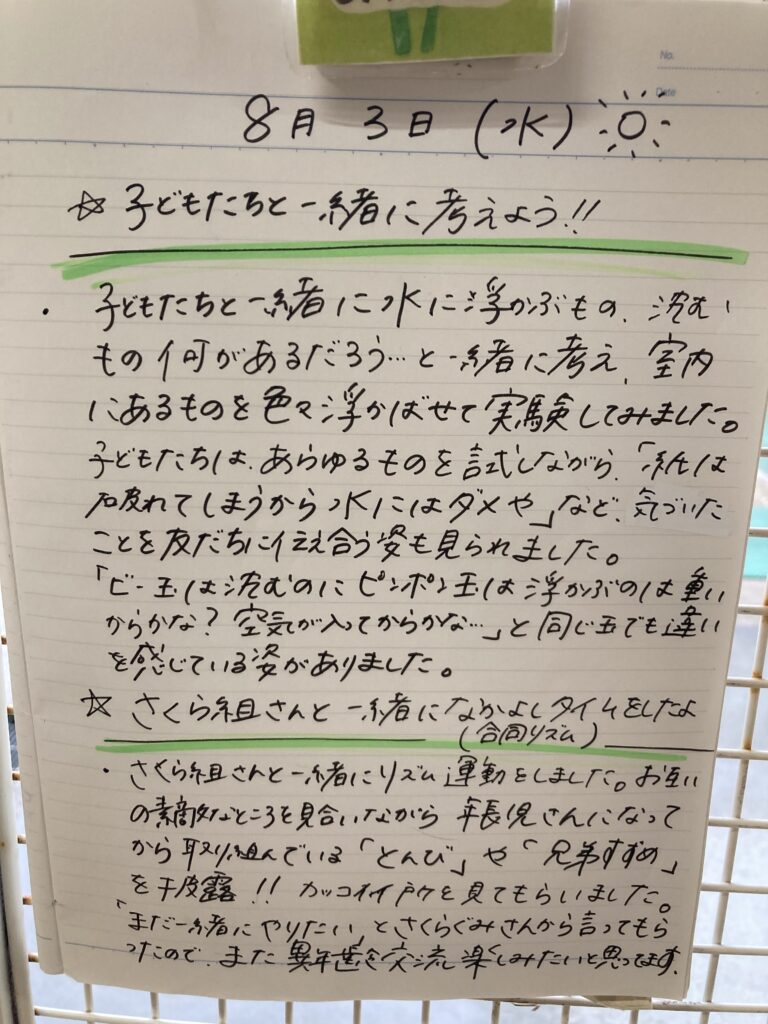 No.
Date
8月 3日 (水)
☆ 子どもたちと一緒に考えよう!!
・ 子どもたちと一緒に水に浮かぶもの、沈む
もの何があるだろう…と一緒に考え、室内
にあるものを色々浮かばせて実験してみました。
子どもたちは、あらゆるものを試しながら、「紙は
破れてしまうから水にはダメや」など、気づいた
ことを友だちに伝え合う姿も見られました。
「ビー玉は沈むのにピンポン玉は浮かぶのは重い
からかな？空気が入ってからかな…」と同じ玉でも違い
を感じている姿がありました。
☆ さくら組さんと一緒になかよしタイムをしたよ
(合同リズム)
・ さくら組さんと一緒にリズム運動をしました。お互い
の素敵なところを見合いながら年長児さんになって
から取り組んでいる「とんび」や「兄弟すずめ」
を披露!! カッコイイ所を見てもらいました。
「まだ一緒にやりたい」とさくらぐみさんから言ってもら
ったので、また異年齢交流楽しみたいと思ってます。